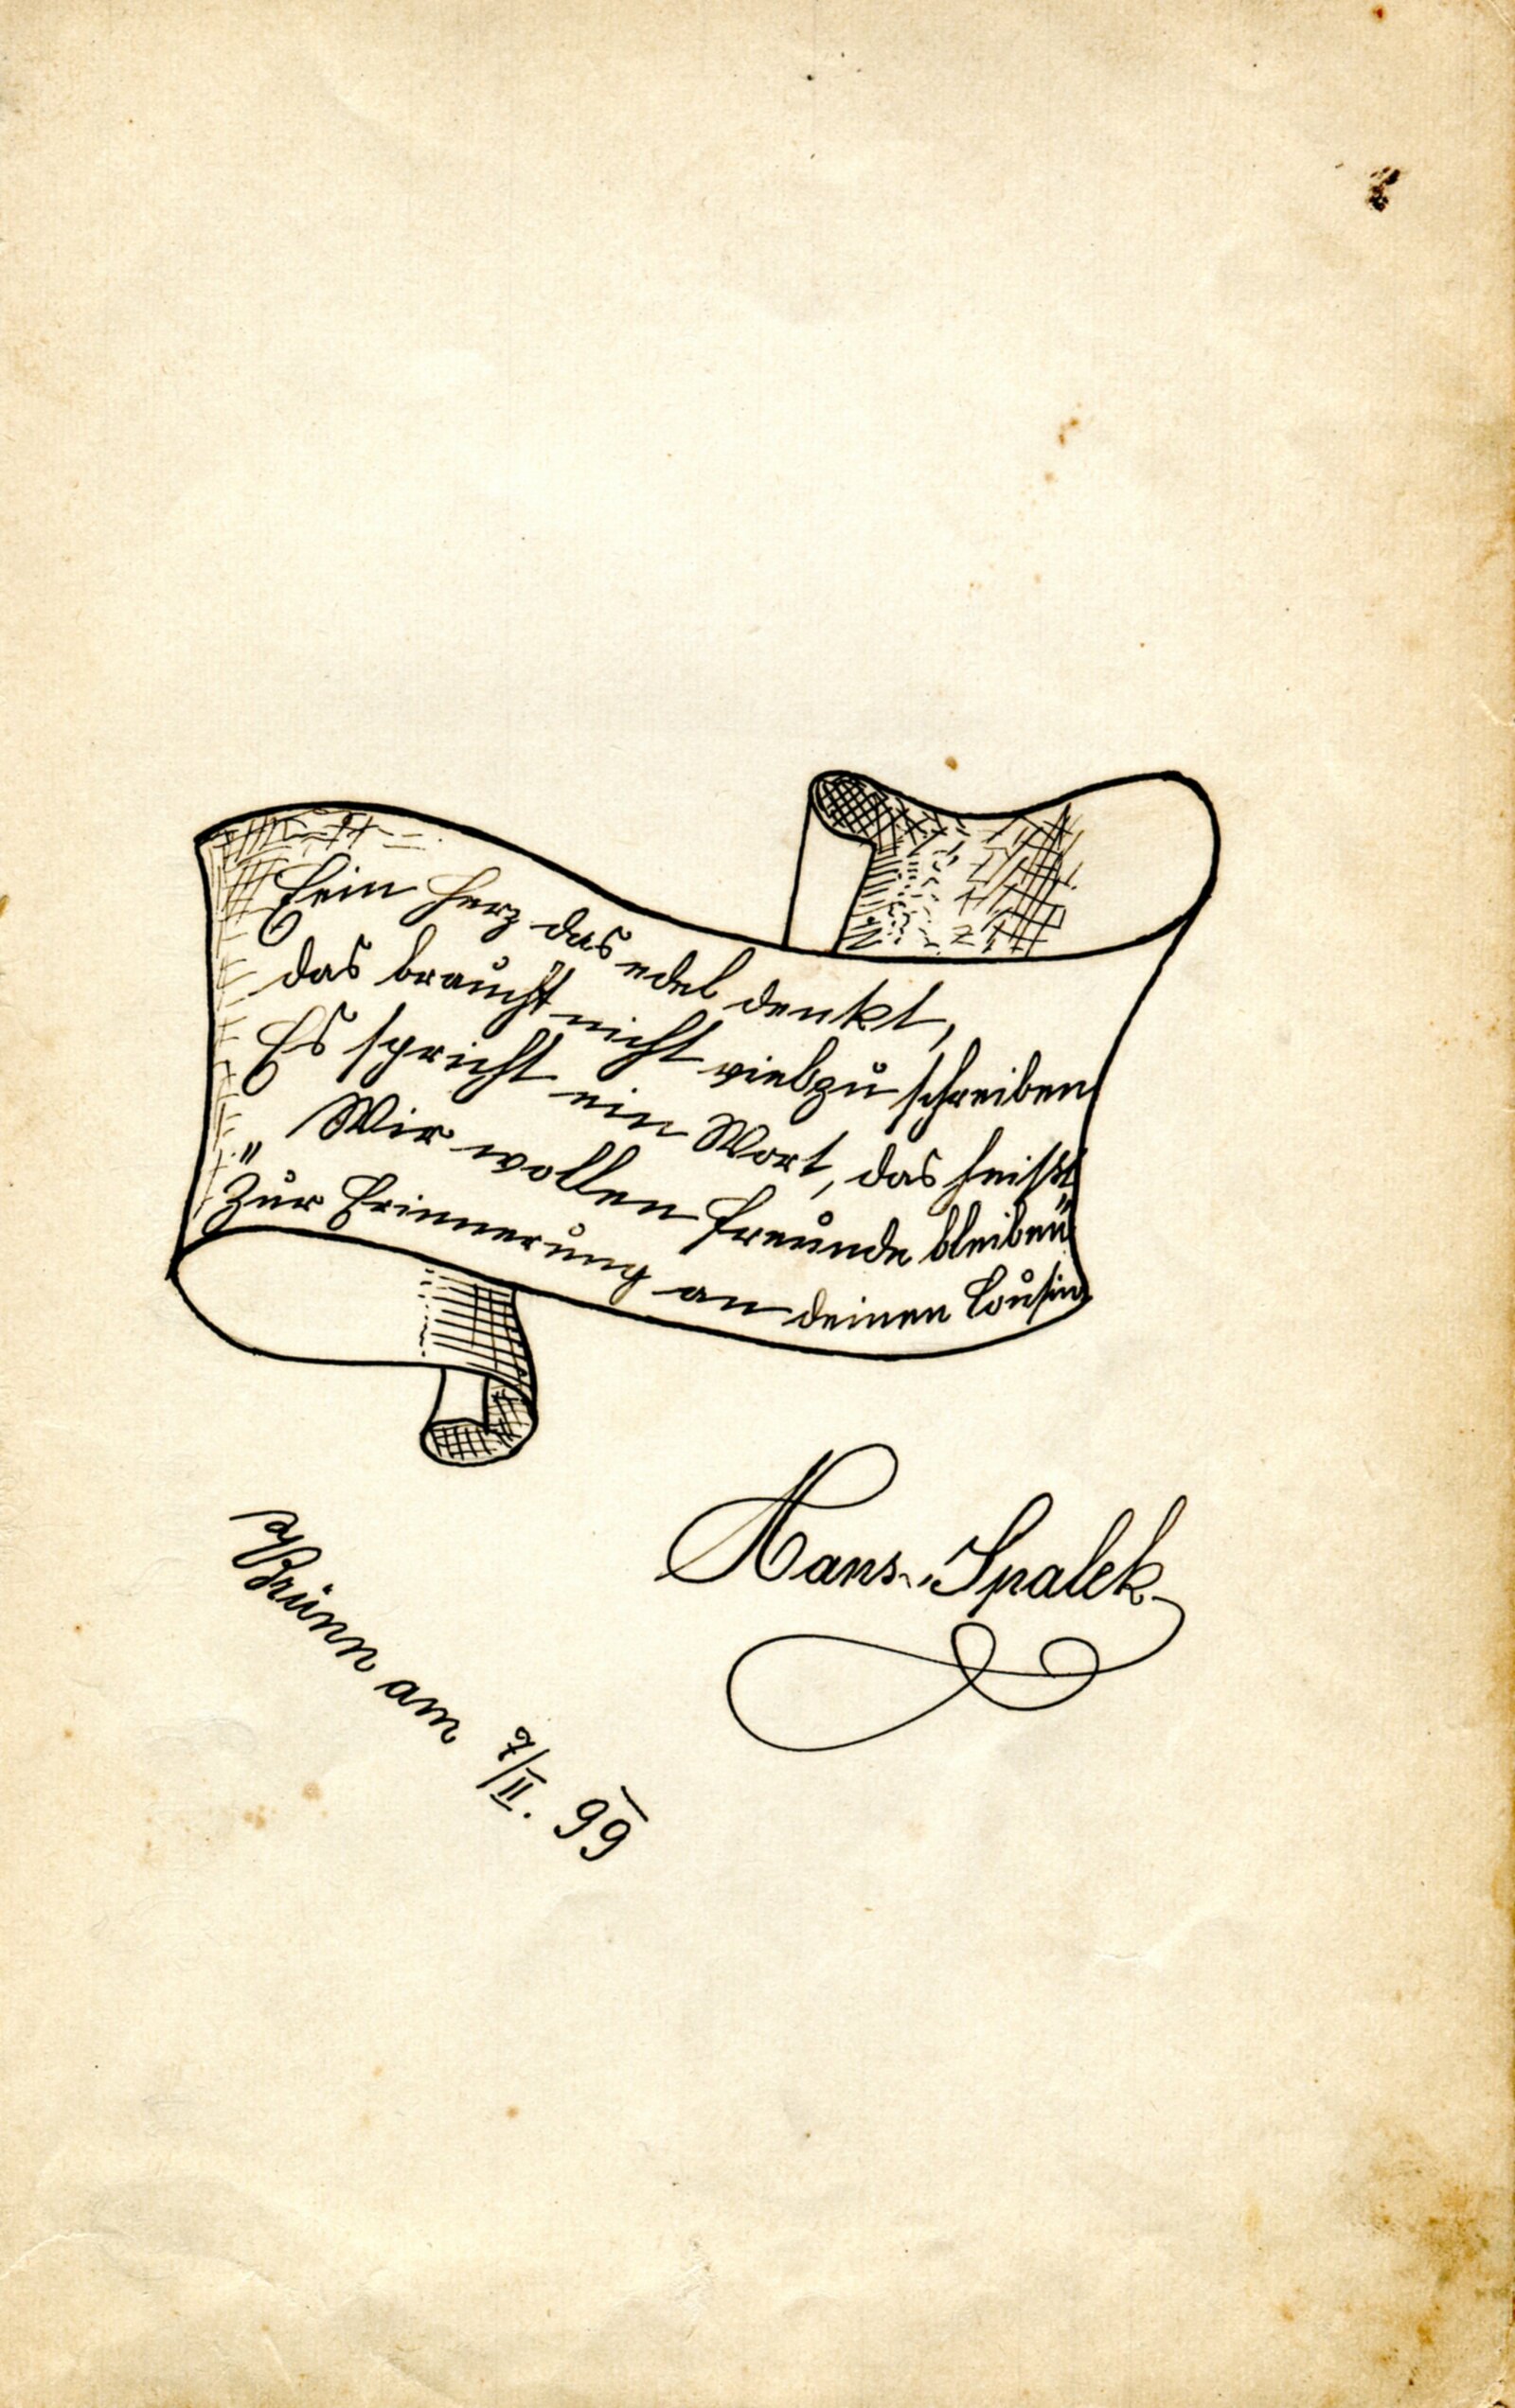 Ein Herz das edel denkt,
das braucht nicht viel zu schreiben
Es spricht ein Wort, das heißt
„Wir wollen Freunde bleiben“
Zur Erinnerung an deinen Cousin
Hans Spalek
Brünn am 7/II. 99